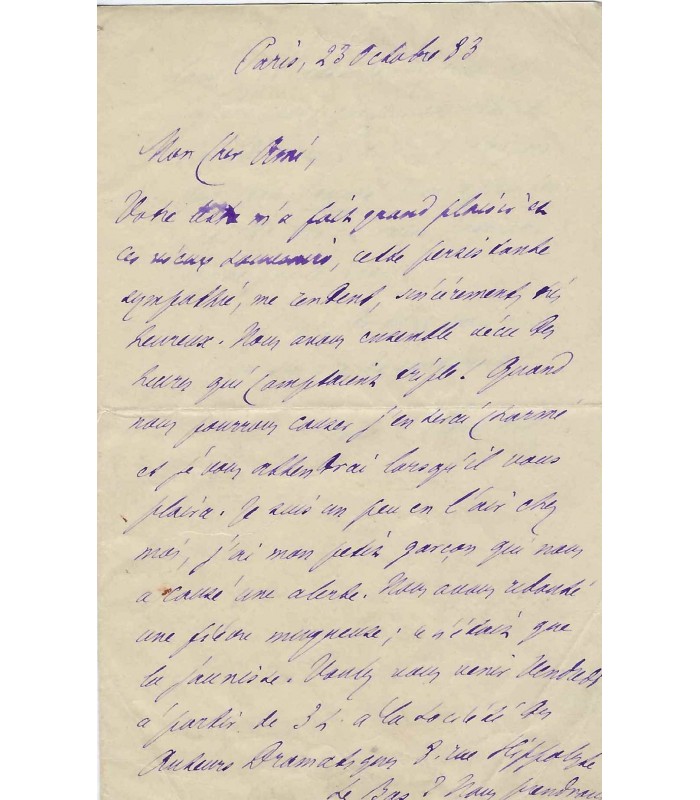 Paris, 23 Octobre 83
Mon cher Ami,
Votre lettre m'a fait grand plaisir et
ces vieux souvenirs, cette persistante
sympathie, me rendent, sincèrement, très
heureux. Nous avons ensemble vécu des
heures qui comptaient triple! Quand
nous pourrons causer j'en serai charmé
et je vous attendrai lorsqu'il vous
plaira. Je suis un peu en l'air chez
moi, j'ai mon petit garçon qui nous
a causé une alerte. Nous avons redouté
une fièvre muqueuse; ce n'était que
la jaunisse. Voulez vous venir Vendredi
à partir de 3 h. à la Société des
Auteurs Dramatiques 8. rue Hippolyte
Le Bas? Nous